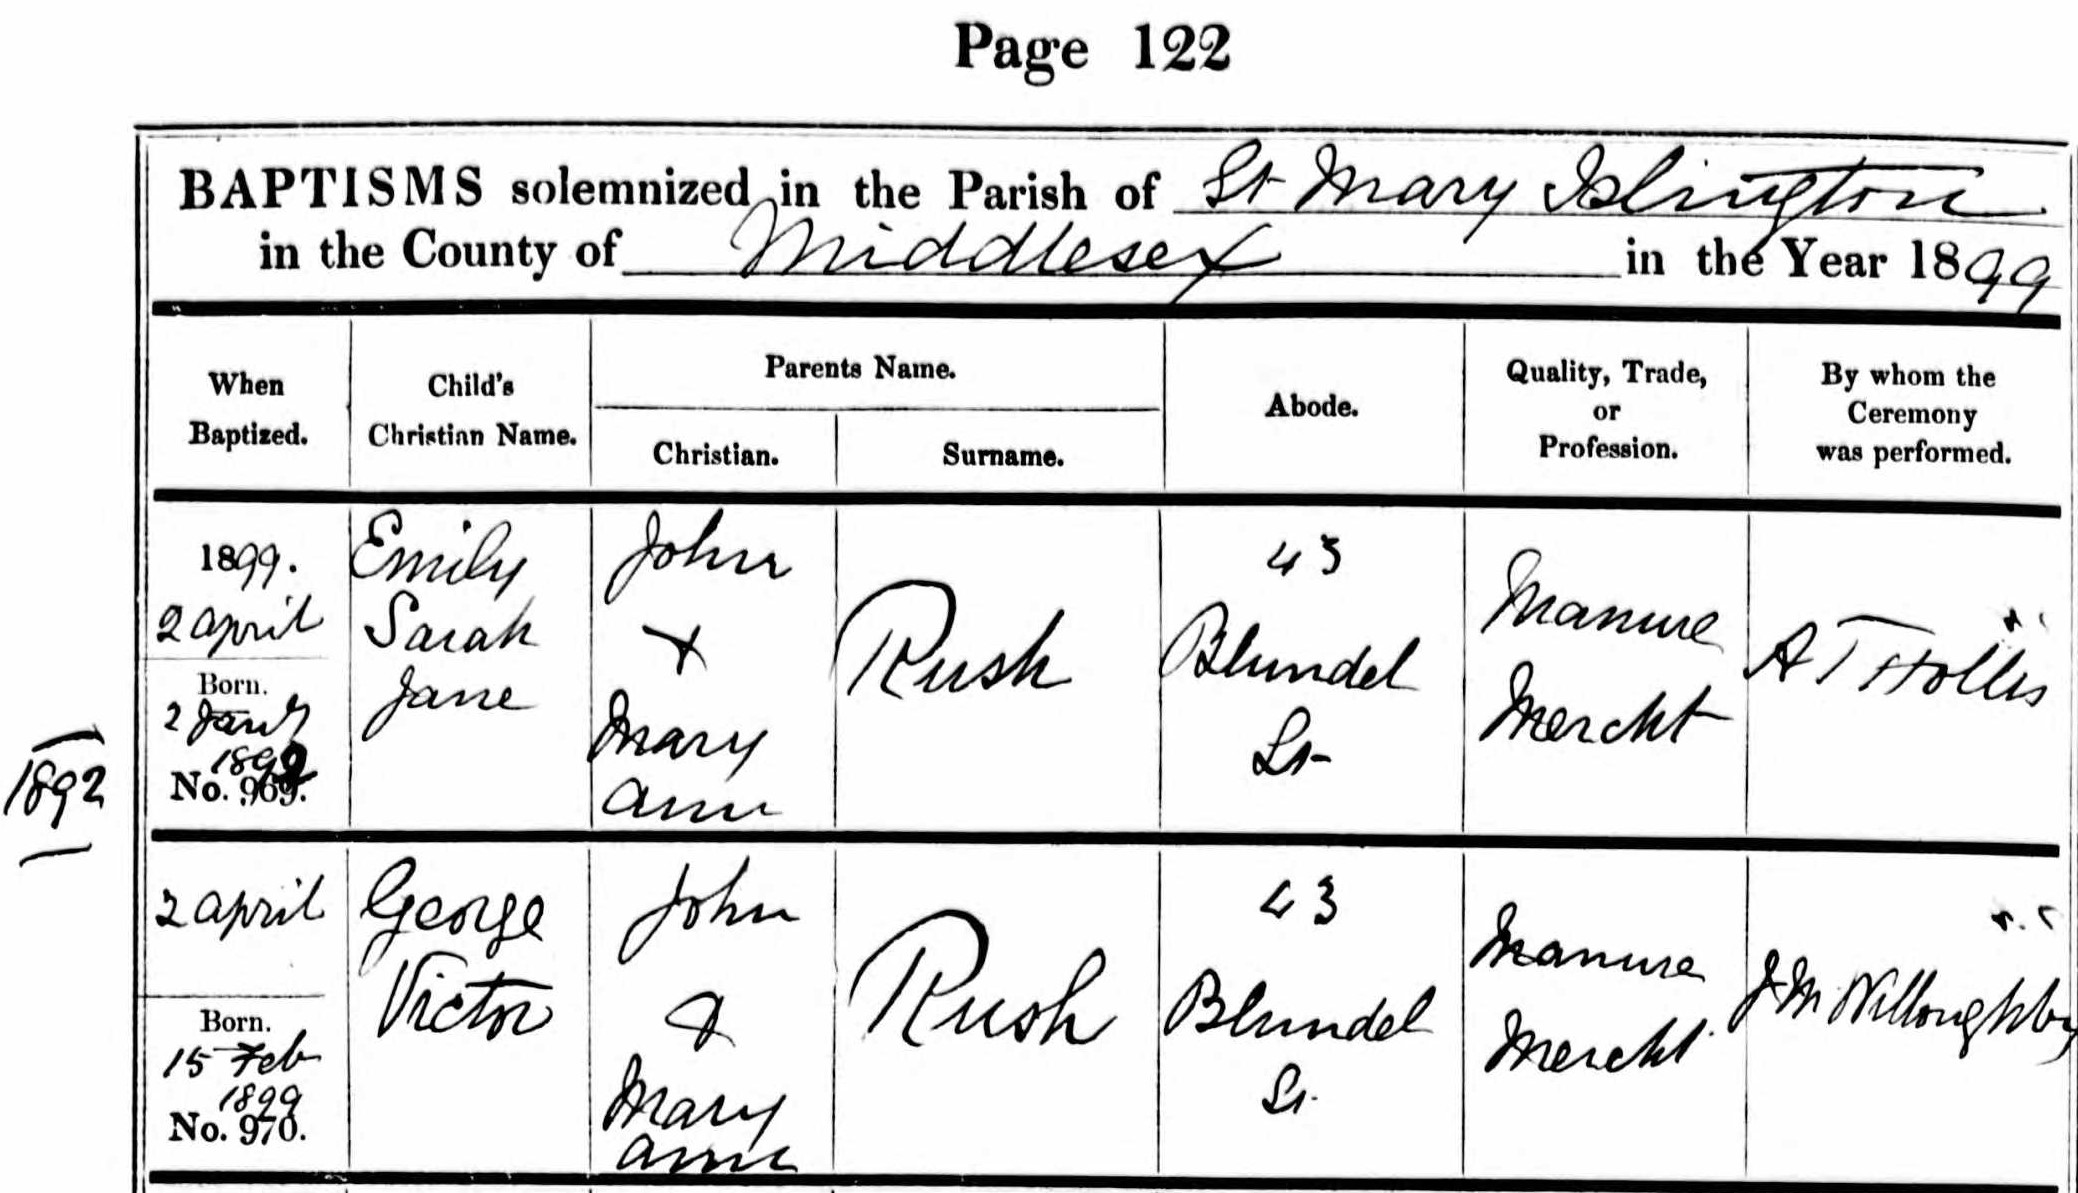 Page 122
BAPTISMS solemnized in the Parish of St Mary Islington
in the County of Middlesex in the Year 1899
When
Baptized.
Child's
Christian Name.
Parents Name.
Christian.
Surname.
Abode.
Quality, Trade,
or
Profession.
By whom the
Ceremony
was performed.
1899.
2 April
Born.
2 Jany
1892
No. 969.
Emily
Sarah
Jane
John
+
Mary
Ann
Rush
43
Blundel
St
Manure
Mercht
A T Hollis
1892
2 April
Born.
15 Feb
1899
No. 970.
George
Victor
John
&
Mary
Ann
Rush
43
Blundel
St.
Manure
Mercht.
J M Willoughby